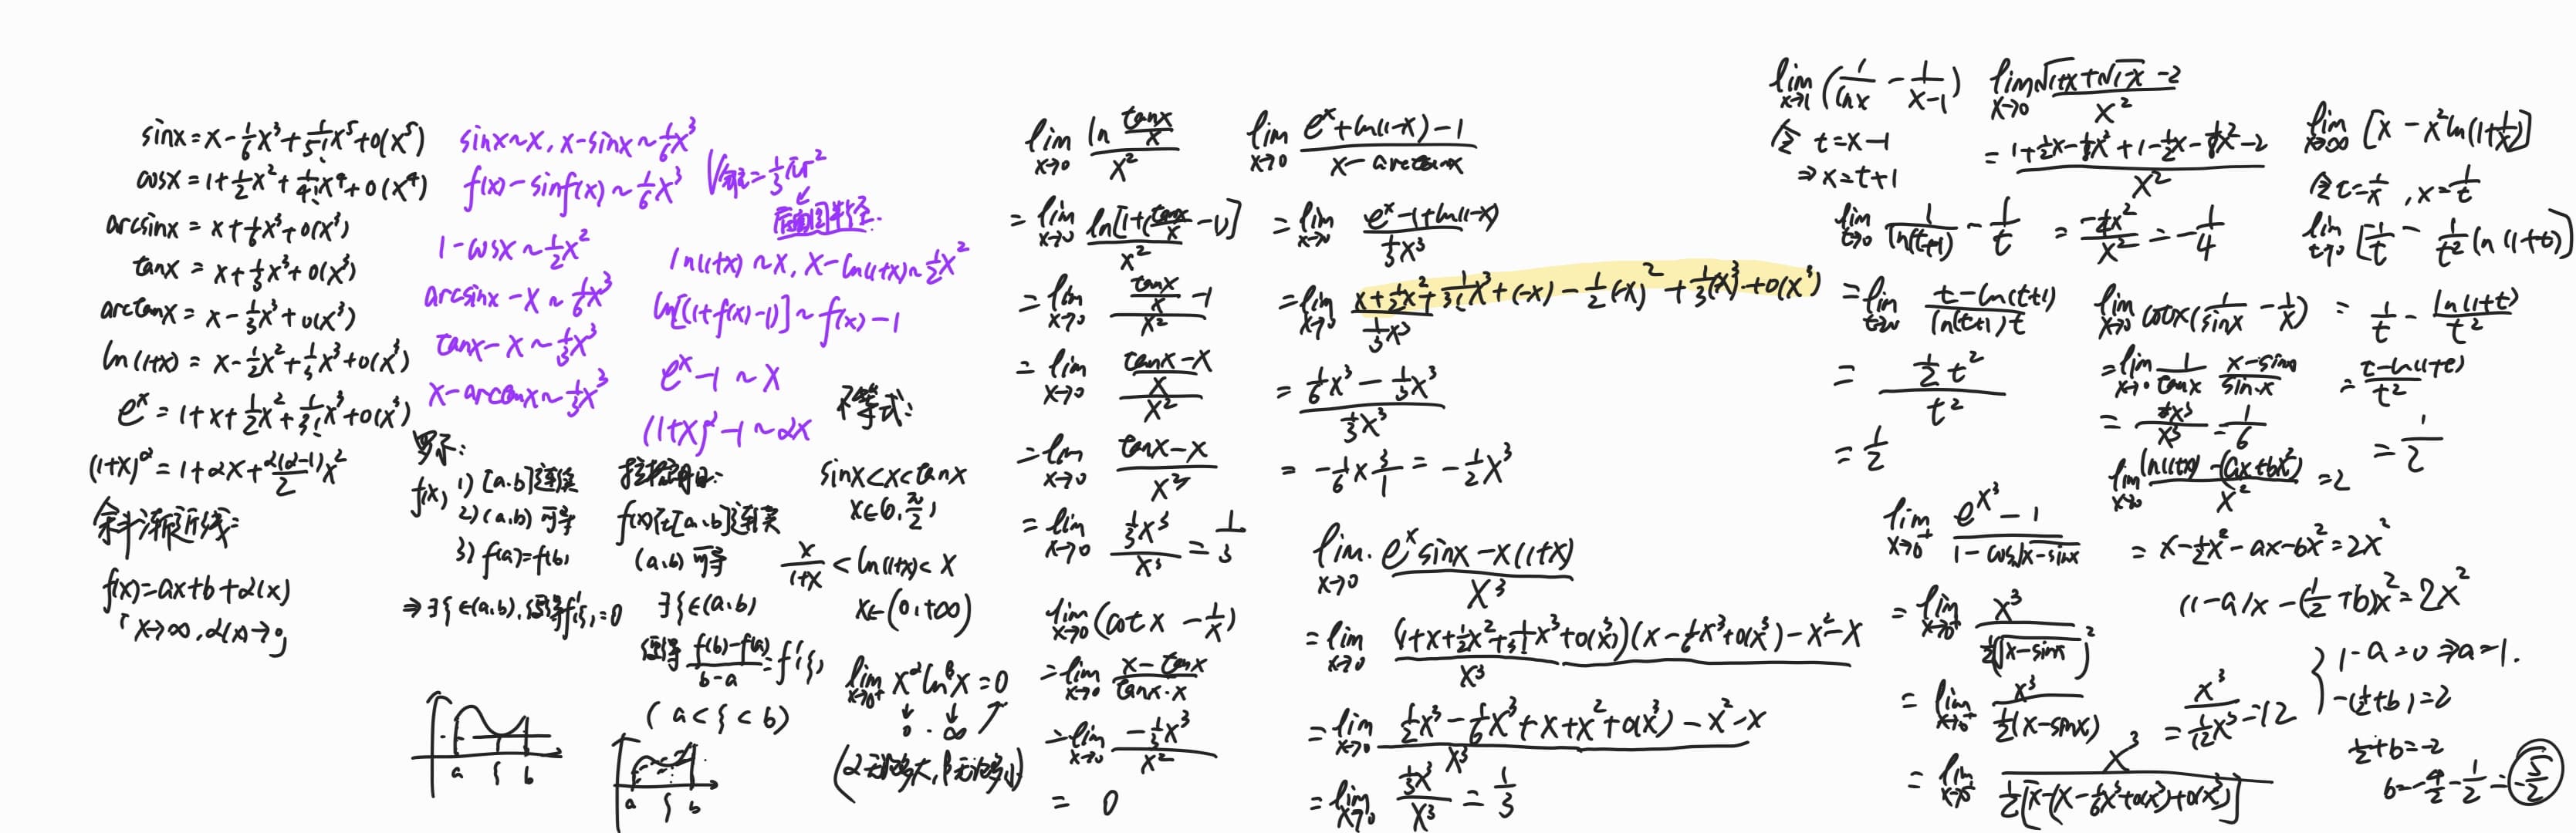 sinx = x - 1/6 x³ + 1/5! x⁵ + o(x⁵)
cosx = 1 + 1/2 x² + 1/4! x⁴ + o(x⁴)
arcsinx = x + 1/6 x³ + o(x³)
tanx = x + 1/3 x³ + o(x³)
arctanx = x - 1/3 x³ + o(x³)
ln(1+x) = x - 1/2 x² + 1/3 x³ + o(x³)
eˣ = 1 + x + 1/2 x² + 1/3! x³ + o(x³)
(1+x)^α = 1 + αx + α(α-1)/2 x²
斜渐近线:
f(x) = ax + b + α(x)
x→∞, α(x)→0
sinx ~ x, x - sinx ~ 1/6 x³
f(x) - sinf(x) ~ 1/6 x³
1 - cosx ~ 1/2 x²
arcsinx - x ~ 1/6 x³
tanx - x ~ 1/3 x³
x - arctanx ~ 1/3 x³
V = 1/3 πr²
ln(1+x) ~ x, x - ln(1+x) ~ 1/2 x²
ln[(1+f(x)-1)] ~ f(x) - 1
eˣ - 1 ~ x
(1+x)^α - 1 ~ αx
罗尔:
f(x) 1) [a.b]连续
2) (a.b) 可导
3) f(a) = f(b)
⇒ ∃ξ∈(a.b), 使得f'(ξ) = 0
a ξ b
拉格朗日:
f(x)在[a.b]连续
(a.b) 可导
∃ξ∈(a.b)
使得 (f(b)-f(a))/(b-a) = f'(ξ)
(a < ξ < b)
a ξ b
不等式:
sinx < x < tanx
x∈(0, π/2)
x/(1+x) < ln(1+x) < x
x∈(0, +∞)
lim x→0⁺ x^α ln^β x = 0
0 · ∞
(α无限大, β无限小)
lim x→0 ln(tanx/x) / x²
= lim x→0 ln[1+(tanx/x - 1)] / x²
= lim x→0 (tanx/x - 1) / x²
= lim x→0 ((tanx - x)/x) / x²
= lim x→0 (tanx - x) / x³
= lim x→0 (1/3 x³) / x³ = 1/3
lim x→0 (cotx - 1/x)
= lim x→0 (x - tanx) / (tanx·x)
= lim x→0 (-1/3 x³) / x²
= 0
lim x→0 (eˣ + ln(1-x) - 1) / (x - arctanx)
= lim x→0 (eˣ - 1 + ln(1-x)) / (1/3 x³)
= lim x→0 (x + 1/2 x² + 1/3! x³ + (-x) - 1/2 (-x)² + 1/3 (-x)³ + o(x³)) / (1/3 x³)
= (1/6 x³ - 1/3 x³) / (1/3 x³)
= -1/6 × 3/1 = -1/2 x³
lim x→0 (eˣ sinx - x(1+x)) / x³
= lim x→0 ((1 + x + 1/2 x² + 1/3! x³ + o(x³))(x - 1/6 x³ + o(x³)) - x² - x) / x³
= lim x→0 (1/2 x³ - 1/6 x³ + x + x² + o(x³) - x² - x) / x³
= lim x→0 (1/3 x³) / x³ = 1/3
lim x→1 (1/lnx - 1/(x-1))
令 t = x-1
⇒ x = t+1
lim t→0 1/ln(t+1) - 1/t
= lim t→0 (t - ln(t+1)) / (ln(t+1) t)
= (1/2 t²) / t²
= 1/2
lim x→0 (√(1+x) + √(1-x) - 2) / x²
= (1 + 1/2 x - 1/8 x² + 1 - 1/2 x - 1/8 x² - 2) / x²
= (-1/4 x²) / x² = -1/4
lim x→0 cotx(1/sinx - 1/x)
= lim x→0 1/tanx · (x - sinx)/(sin·x)
= (1/6 x³) / x³ = 1/6
lim x→∞ [x - x² ln(1+1/x)]
令 t = 1/x, x = 1/t
lim t→0 [1/t - 1/t² ln(1+t)]
= 1/t - ln(1+t)/t²
= (t - ln(1+t)) / t²
= 1/2
lim x→0⁺ (e^(x³) - 1) / (1 - cos√(x - sinx))
= lim x→0⁺ x³ / (1/2 (√(x - sinx))²)
= lim x→0⁺ x³ / (1/2 (x - sinx)) = x³ / (1/12 x³) = 12
= lim x→0⁺ x³ / (1/2 [x - (x - 1/6 x³ + o(x³)) + o(x³)])
lim x→0 (ln(1+x) - (ax+bx²)) / x² = 2
= x - 1/2 x² - ax - bx² = 2x²
(1-a)x - (1/2 + b)x² = 2x²
1 - a = 0 ⇒ a = 1.
-(1/2 + b) = 2
1/2 + b = -2
b = -4/2 - 1/2 = -5/2